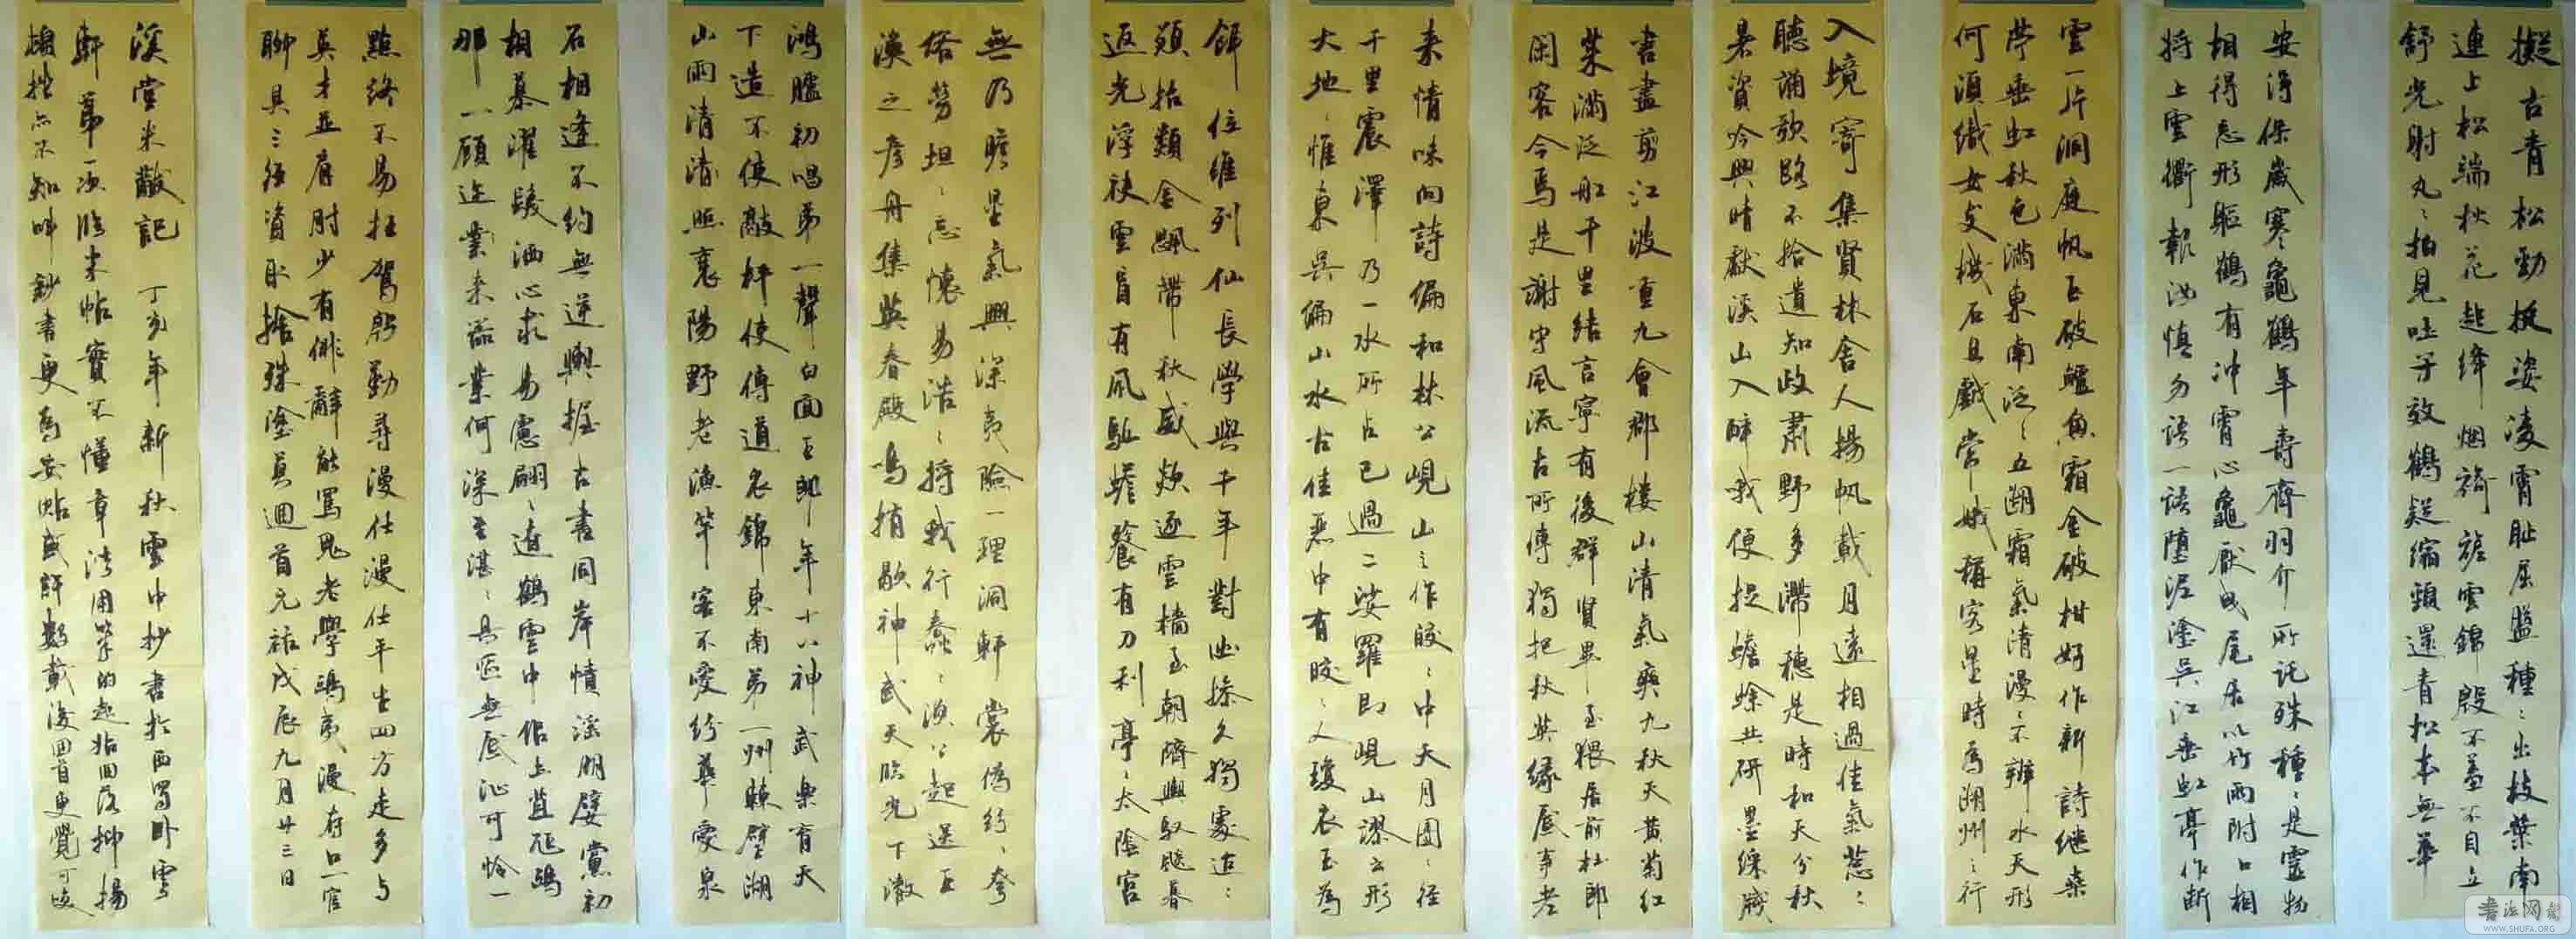 擬古青松勁挺姿凌霄耻屈盤種〻出枝葉南
連上松端秋花起绛烟旖旎雲錦殷不羞不自立
舒光射丸〻柏見吐子效鶴疑縮頸還青松本無華
安得保歲寒龜鶴年壽齊羽介所託殊種〻是靈物
相得忘形軀鶴有冲霄心龜厭曳尾居以竹兩附口相
将上雲衢報汝慎勿語一語墮泥塗吴江垂虹亭作断
雲一片洞庭帆玉破鱸魚霜金破柑好作新詩继桑
苧垂虹秋色滿東南泛〻五湖霜氣清漫〻不辨水天形
何須織女支機石且戲常娥稱客星時為湖州之行
入境寄集賢林舍人揚帆載月遠相過佳氣葱〻
聽誦歌路不拾遺知政肅野多滯穗是時和天分秋
暑資吟興晴獻溪山入醉哦便捉蟾蜍共研墨綵牋
書盡剪江波重九會郡樓山清氣爽九秋天黄菊紅
茱滿泛船千里結言寧有後群賢畢至猥居前杜郎
閑客今焉是謝守風流古所傳獨把秋英緣底事老
来情味向詩偏和林公峴山之作皎〻中天月團〻徑
千里震澤乃一水所占已過二娑羅即峴山謬云形
大地〻惟東吴偏山水古佳丽中有皎〻人瓊衣玉為
餌位維列仙長學與千年對幽操久獨處迢〻
願招類金飈帶秋威欻逐雲檣至朝隮輿馭飈暮
返光浮袂雲盲有風驅蟾餮有刀利亭〻太陰宫
無乃瞻星氣興深夷險一理洞軒裳偽紛〻夸
俗勞坦〻忘懷易浩〻将我行蠢〻須公起送王
渙之彦舟集英春殿鳴捎歇神武天臨光下澈
鴻臚初唱第一聲白面玉郎年十八神武樂育天
下造不使敲枰使傳道衣錦東南第一州棘壁湖
山兩清清照襄陽野老漁竿客不愛紛華愛泉
石相逢不約無逆輿握古書同岸幘淫朋嬖黨初
相慕濯髮洒心求易慮翩〻遼鶴雲中侣土苴尪鴟
那一顧迩業来器業何深至湛〻具區無底沚可怜一
點終不易枉駕殷勤尋漫仕漫仕平生四方走多与
英才並肩肘少有俳辭能罵鬼老學鴟夷漫存口一官
聊具三徑資取捨殊塗莫迴首元祐戊辰九月廿三日
溪堂米黻記 丁亥年新秋雲中抄書於西蜀卧雪
軒第一次臨米帖實不懂章法用筆的起始回落抑揚
頓挫亦不知 抄書更為妥貼 許數載後回首更覺可
书法网
WWW.SHUFA.ORG